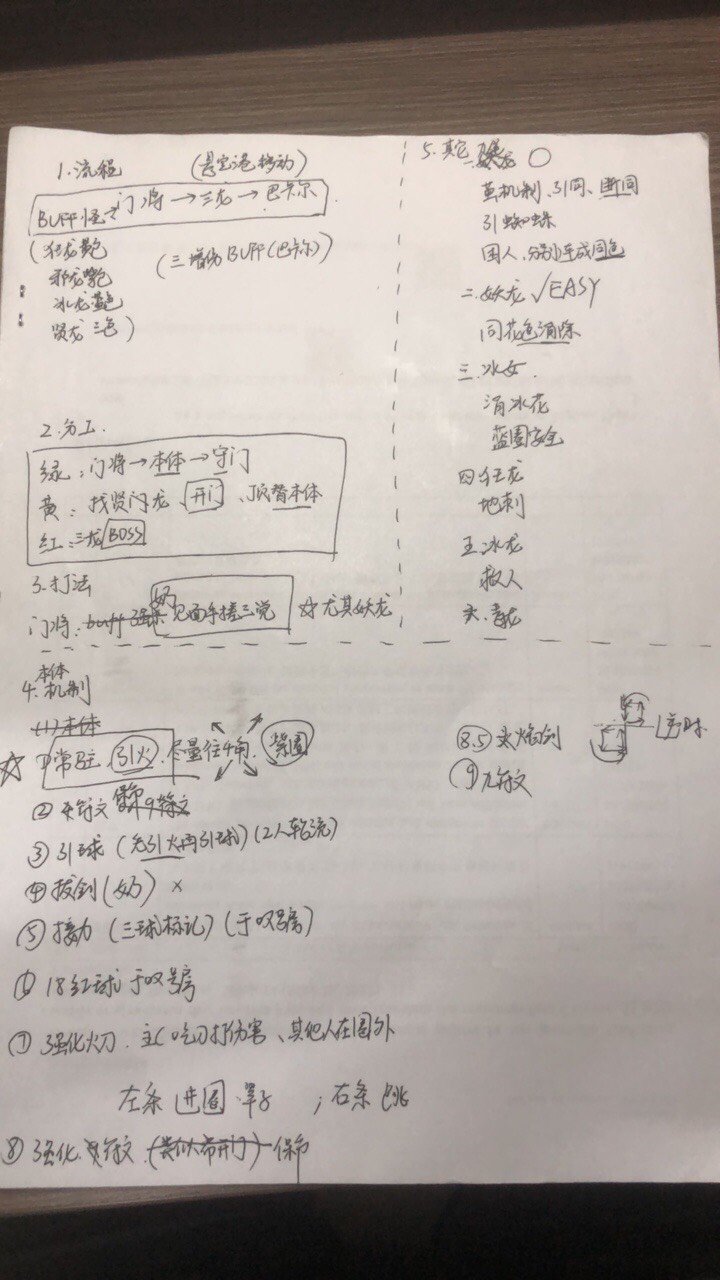 1.流程
BUFF怪→门将→三龙→巴卡尔
(狂龙
邪龙
冰龙
贤龙 三色)
(三增伤BUFF(巴卡尔))
2.分工.
绿:门将→本体→守门
黄:找贤门龙、开门、顶替本体
红:三龙BOSS
3.打法
门将: 见面手搓三觉 ☆尤其妖龙
本体
4.机制
(1)本体
☆ ①常驻、引火.尽量往4角. 紫圈
②符文
③引球(先引火再引球)(2人轮流)
④拔剑(奶)×
⑤接力(三球标记)(于叹号房)
⑥18红球 于叹号房
⑦强化火刀.主C吃刀打伤害、其他人在圈外
左条 进圈 ;右条 跳
⑧强化 符文
5.其它
黄机制、引同、断同
引蜘蛛
困人、分别连成同色
二.妖龙√EASY
同花色消除
三.冰女.
消冰花
蓝圈安全
四.狂龙
地刺
五.冰龙
救人
六.
⑧.5)火焰剑
⑨九符文